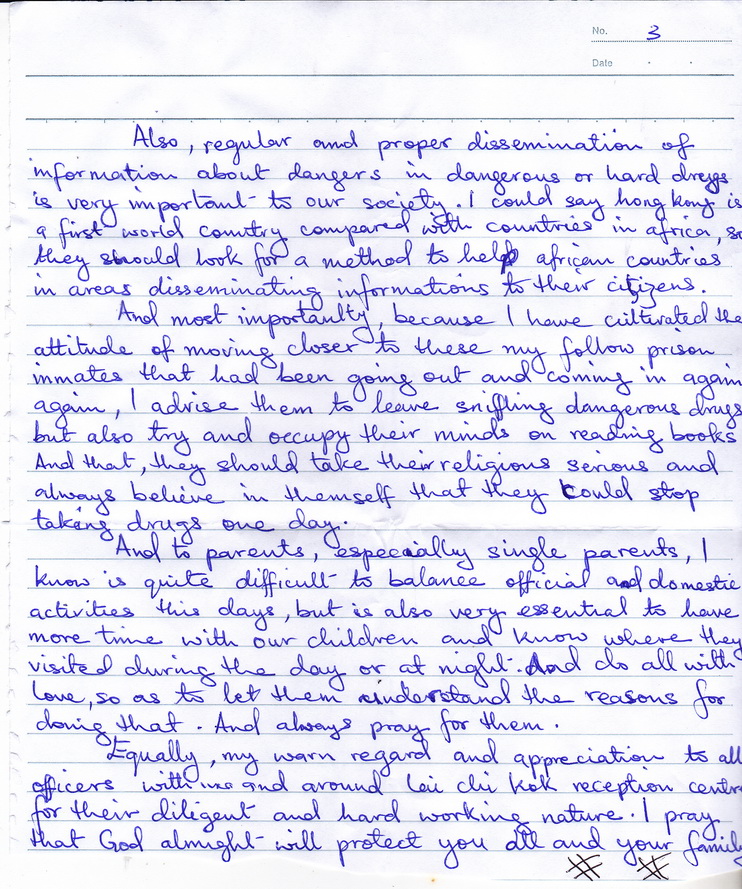 No. 3
Date
Also, regular and proper dissemination of
information about dangers in dangerous or hard drugs
is very important to our society. I could say hong kong is
a first world country compared with countries in africa, so
they should look for a method to help african countries
in areas disseminating informations to their citizens.
And most importantly, because I have cultivated the
attitude of moving closer to these my follow prison
inmates that had been going out and coming in again
again, I advise them to leave sniffing dangerous drugs
but also try and occupy their minds on reading books
And that, they should take their religious serious and
always believe in themself that they could stop
taking drugs one day.
And to parents, especially single parents, I
know is quite difficult to balance official and domestic
activities this days, but is also very essential to have
more time with our children and know where they
visited during the day or at night. And do all with
love, so as to let them understand the reasons for
doing that. And always pray for them.
Equally, my warn regard and appreciation to all
officers with and around lai chi kok reception centre
for their diligent and hard working nature. I pray
that God almight will protect you all and your family